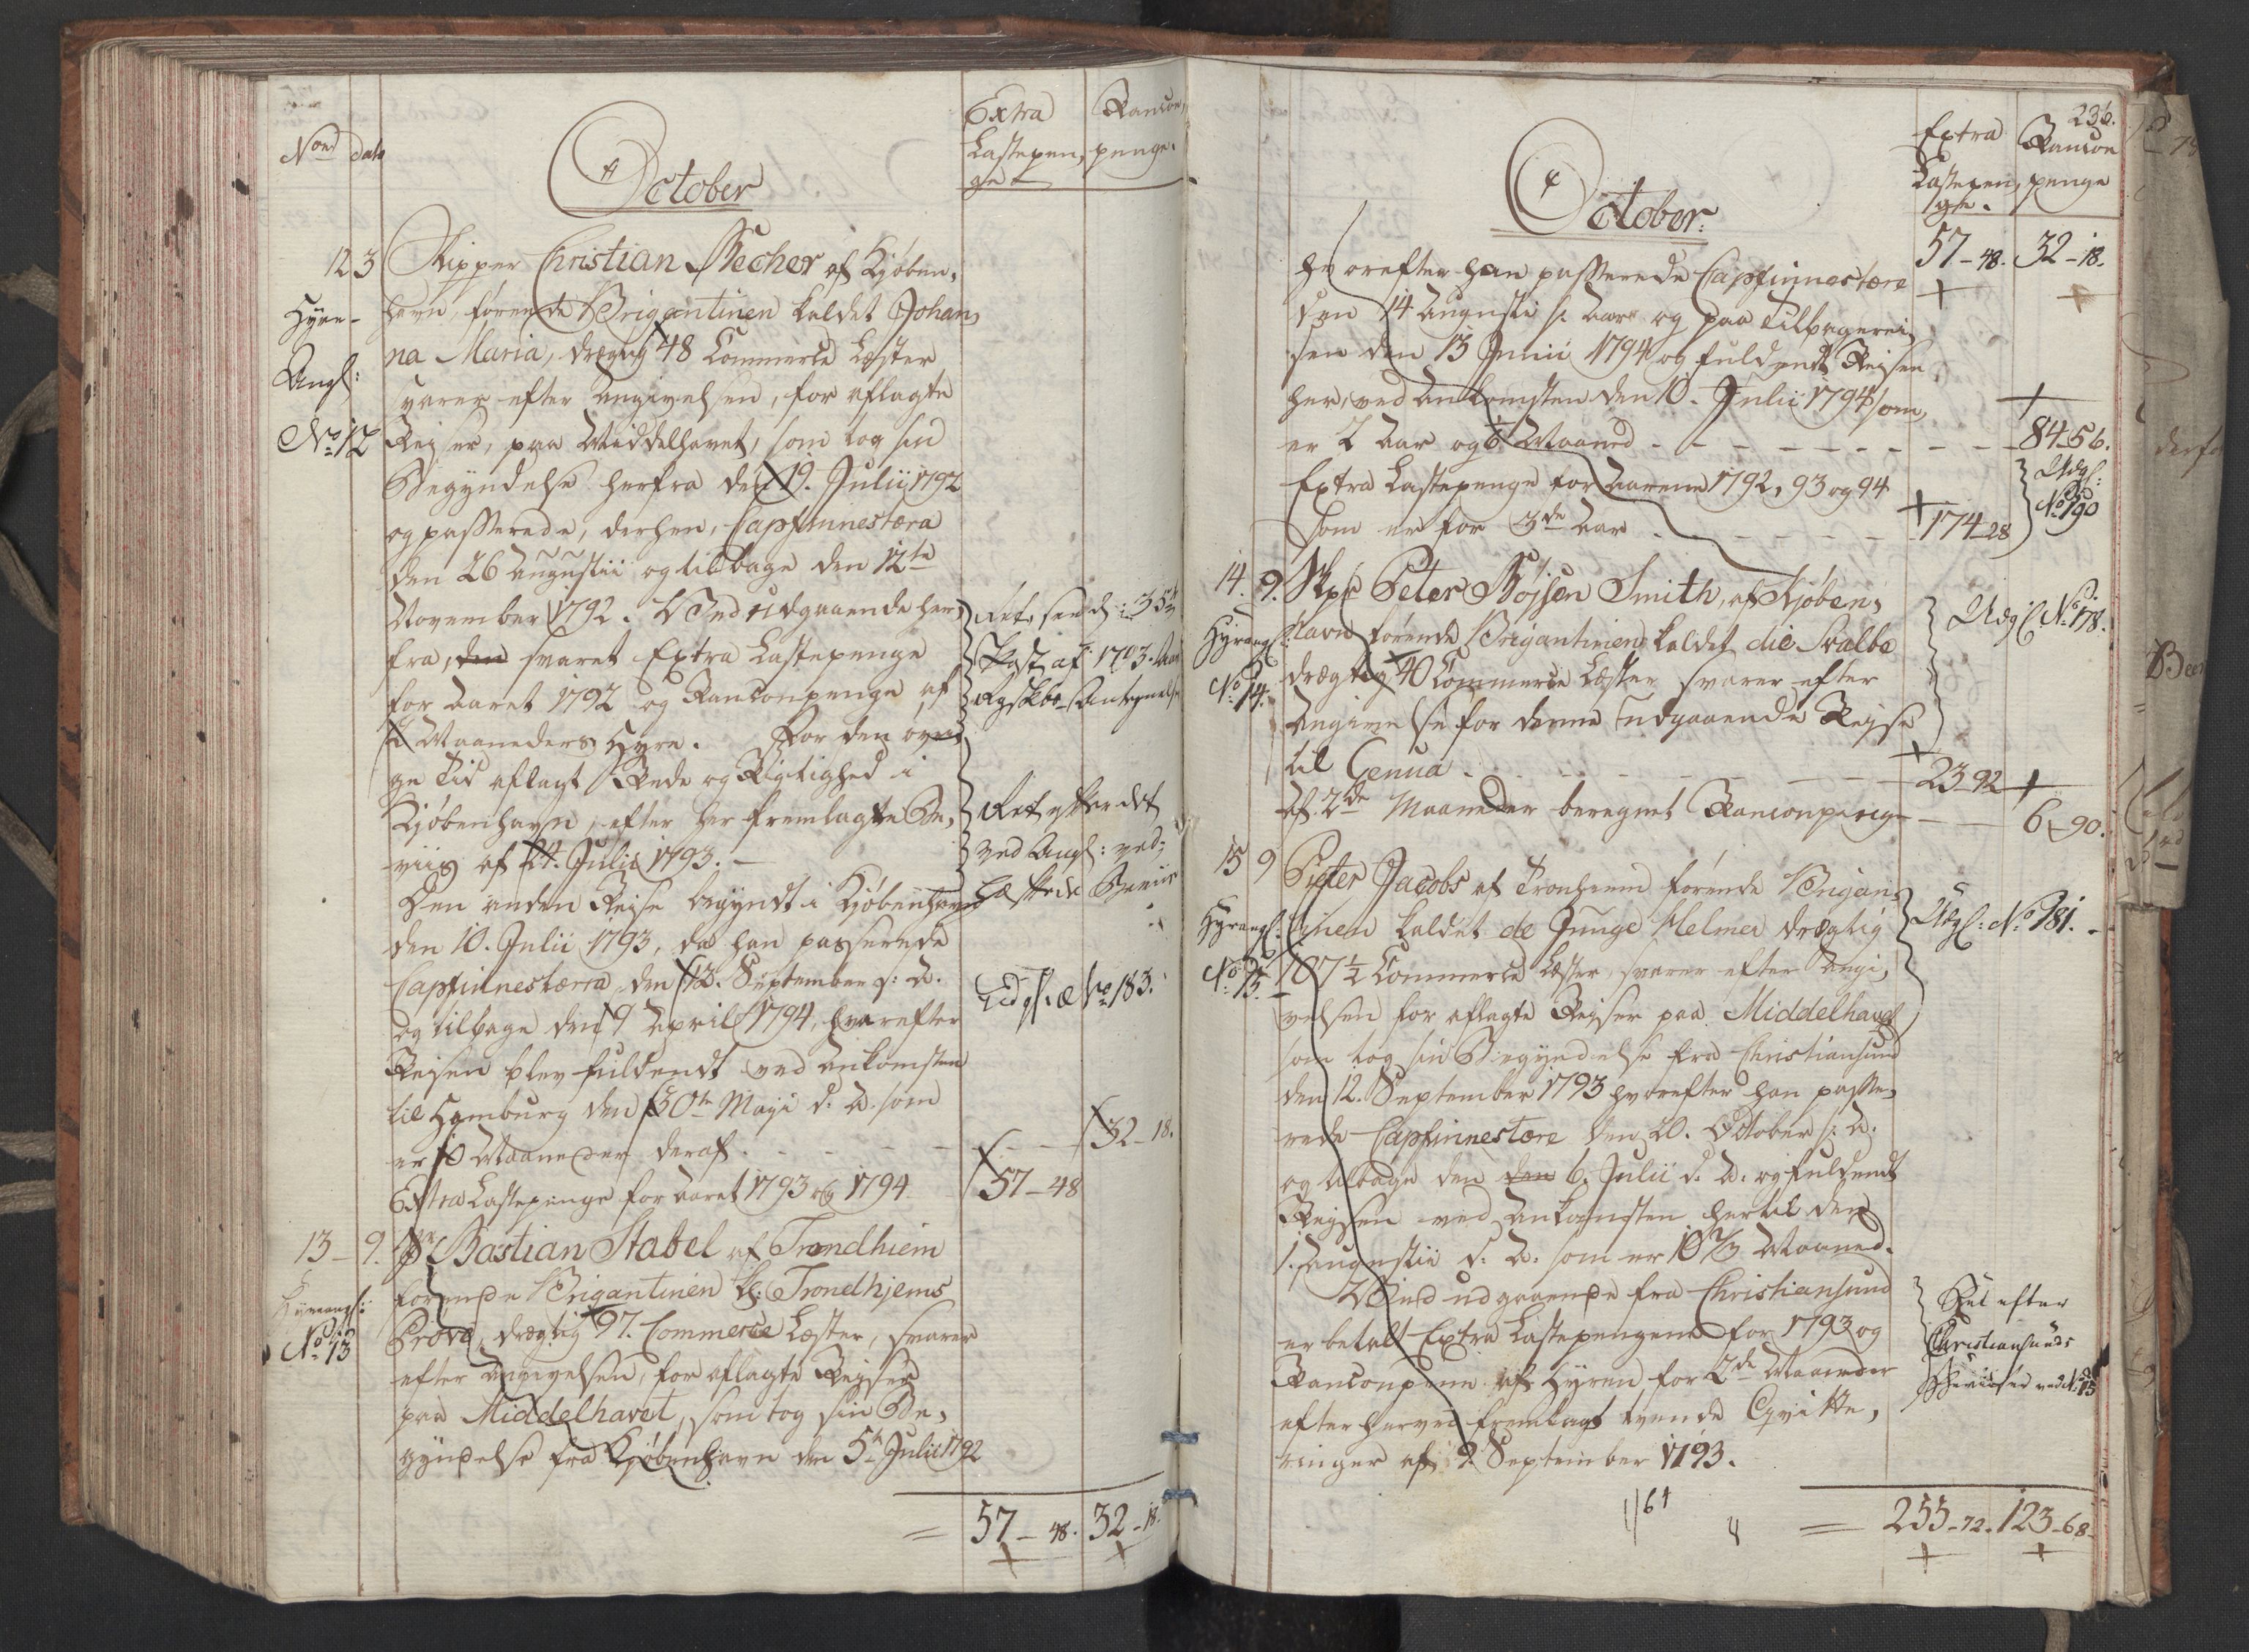 Extra Rancon,
Nois dato Lastepen, penge.
ge
October
12 3 Skipper Christian Becher af Kjøben,
Hyre- havn, førende Brigantinen kaldet Johan,
na Maria, drægtig 48 Commerce Læster
Angl:
svarer efter Angivelsen, for aflagte
No. 12 Reiser, paa Middelhavet, som tog sin
Begyndelse herfra den 19. Julii 1792
og passerede, derhen, Capfinnestæra
den 26 Augustii og tilbage den 12te
November 1792. Ved udgaaende her,
fra, den svaret Extra Lastepenge
for Aaret 1792 og Ranconpenge af
2 Maaneders Hyre. For den øvri,
ge Tid aflagt Rede og Rigtighed i
Kjøbenhavn, efter her fremlagte Be,
viis af 24. Julii 1793.
Ret efter det
ved Angl: ved,
hæftede Beviis
Den anden Reise begyndt i Kjøbenhavn
den 10. Julii 1793, da han passerede
Capfinnestærra, den 13. September s: A.
Udgl: No. 183.
og tilbage den 9 April 1794, hvorefter
Reisen blev fuldendt ved Ankomsten
til Hamburg den 30te Maji d. A. som
er 10 Maaneder deraf - - - - 32-18.
Extra Lastepenge for Aaret 1793 og 1794 57-48
13 - 9. Bastian Stabel af Trondhiem
Hyreangl: førende Brigantinen kl: Trondhjems
No. 13 Prøve, drægtig 97. Commerce Læster, svarer
efter Angivelsen, for aflagte Reiser
paa Middelhavet, som tog sin Be,
gyndelse fra Kjøbenhavn den 5te Julii 1792
= 57-48. 32-18.
236.
Extra Rancon
Lastepen, penge
ge.
October.
57-48. 32-18.
hvorefter han passerede Capfinnestære
den 14 Augusti s. Aar og paa Tilbagerei,
sen den 13 Junii 1794 og fuldendt Reisen
her, ved Ankomsten den 10. Julii 1794 som
er 2 Aar og Maaned - - - - 84-56.
Extra Lastepenge for Aarene 1792, 93 og 94
som er for 3de Aar - - - - 174-28
Udgl:
No. 190
14. 9. Skpr Peter Bøjsen Smith, af Kjøben,
Hyreangl: havn førende Brigantinen kaldet die Svalbe
Udgl No. 178.
No. 14. drægtig 40 Commerce Læster svarer efter
Angivelse for denne udgaaende Reise
til Genua - - - - 23-92
af 2de Maaneder beregnet Ranconpenge - - 6-90.
15 9 Pieter Jacobs af Tronhiem førende Brigan,
Hyreangl: tinen kaldet de Junge Helmer drægtig
Udgl: No. 181.
No. 15. 107½ Commerce Læster, svarer efter Angi,
velsen for aflagte Reiser paa Middelhavet
som tog sin Begyndelse fra Christiansund
den 12. September 1793 hvorefter han passe,
rede Capfinnestære den 20. October s: A.
og tilbage den den 6. Julii d. A. og fuldendt
Reysen ved Ankomsten hertil den
1. Augustii d: A. som er 10 2/3 Maaned.
Ved udgaaende fra Christiansund
er betalt Extra Lastepengene for 1793 og
Ranconpenge af Hyren for 2de Maaneder
efter herved fremlagt tvende Qvitte,
ringer af 9 September 1793.
efter
Christiansunds
Beviiser ved No. 15
= 255-72. 123-68.